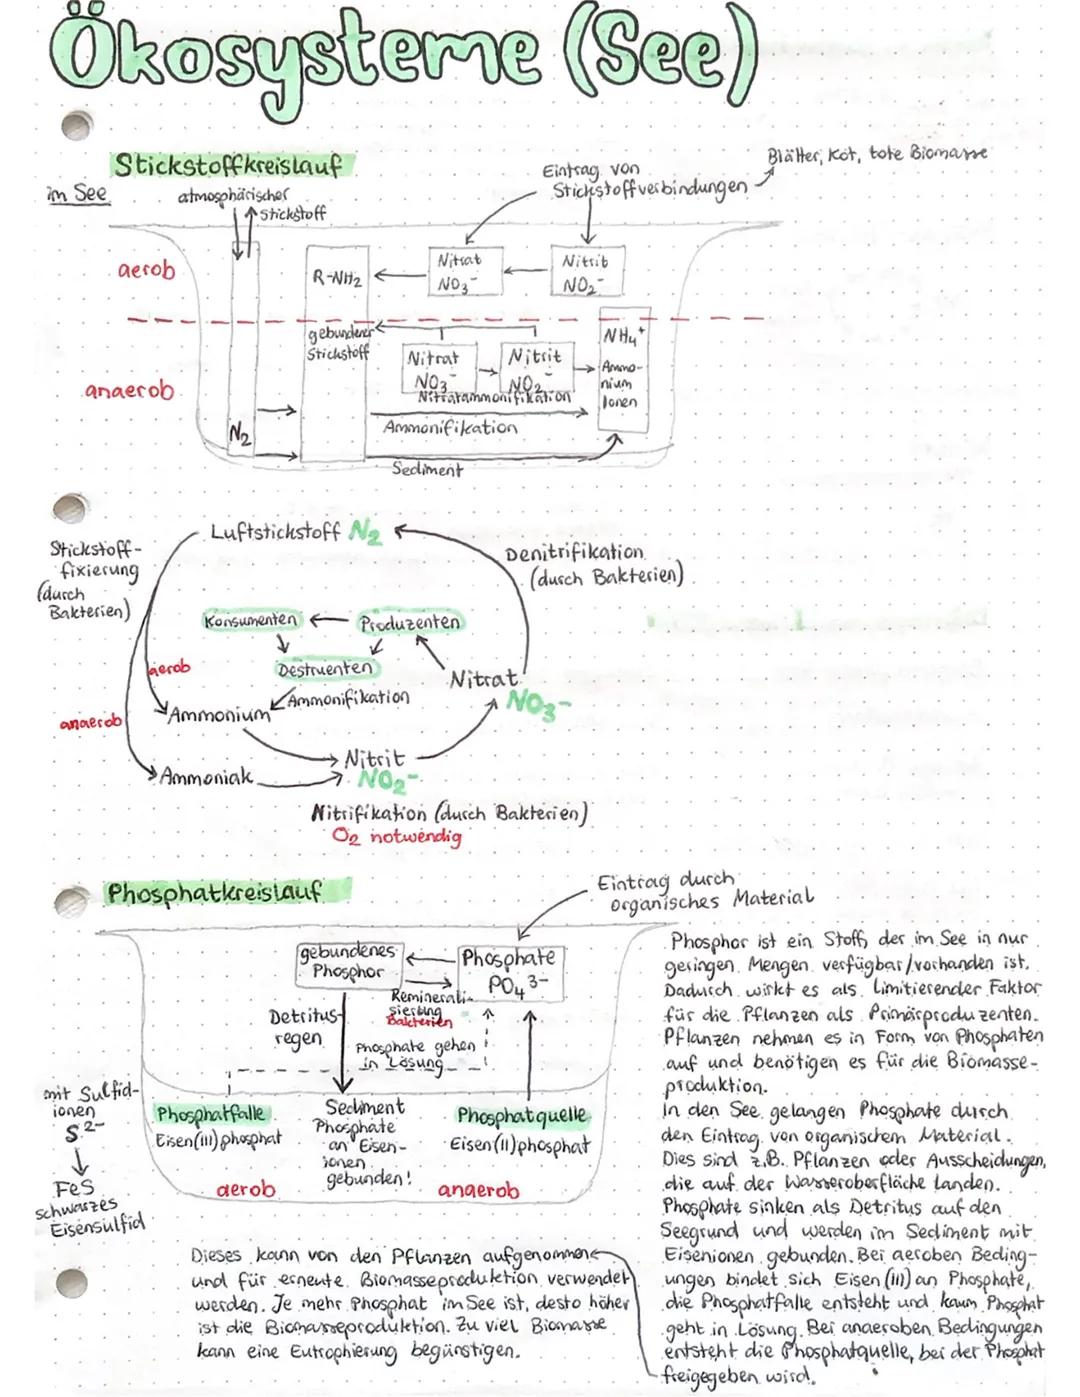 Ökosysteme (See)
Stickstoffkreislauf
im See
atmosphärischer
Stickstoff
Eintrag von
Stickstoffverbindungen
Blätter, Kot, tote Biomasse
aerob
R-NH2
Nitrat
NO3⁻
Nitrit
NO2⁻
gebundener
Stickstoff
anaerob
Nitrat
NO3⁻
Nitrit
NO2⁻
NH4⁺
Ammo-
nium
Ionen
Nitratammonifikation
Ammonifikation
N2
Sediment
Luftstickstoff N2
Stickstoff-
fixierung
(durch
Bakterien)
Denitrifikation
(durch Bakterien)
Konsumenten
Produzenten
Destruenten
aerob
Nitrat
NO3⁻
Ammonifikation
Ammonium
anaerob
Nitrit
NO2⁻
Ammoniak
Nitrifikation (durch Bakterien)
O2 notwendig
Phosphatkreislauf
Eintrag durch
organisches Material
gebundenes
Phosphor
Phosphate
PO4³⁻
Reminerali-
sierung
Bakterien
Detritus-
regen
Phosphate gehen
in Lösung
mit Sulfid-
ionen
S²⁻
FeS
schwarzes
Eisensulfid
Phosphatfalle
Eisen(III)phosphat
aerob
Sediment
Phosphate
an Eisen-
ionen
gebunden!
Phosphatquelle
Eisen(II)phosphat
anaerob
Phosphor ist ein Stoff, der im See in nur
geringen Mengen verfügbar/vorhanden ist.
Dadurch wirkt es als limitierender Faktor
für die Pflanzen als Primärproduzenten.
Pflanzen nehmen es in Form von Phosphaten
auf und benötigen es für die Biomasse-
produktion.
In den See gelangen Phosphate durch
den Eintrag von organischem Material.
Dies sind z.B. Pflanzen oder Ausscheidungen,
die auf der Wasseroberfläche landen.
Phosphate sinken als Detritus auf den
Seegrund und werden im Sediment mit
Eisenionen gebunden. Bei aeroben Beding-
ungen bindet sich Eisen (III) an Phosphate,
die Phosphatfalle entsteht und kaum Phosphat
geht in Lösung. Bei anaeroben Bedingungen
entsteht die Phosphatquelle, bei der Phosphat
freigegeben wird.
Dieses kann von den Pflanzen aufgenommen
und für erneute Biomasseproduktion verwendet
werden. Je mehr Phosphat im See ist, desto höher
ist die Biomasseproduktion. Zu viel Biomasse
kann eine Eutrophierung begünstigen.